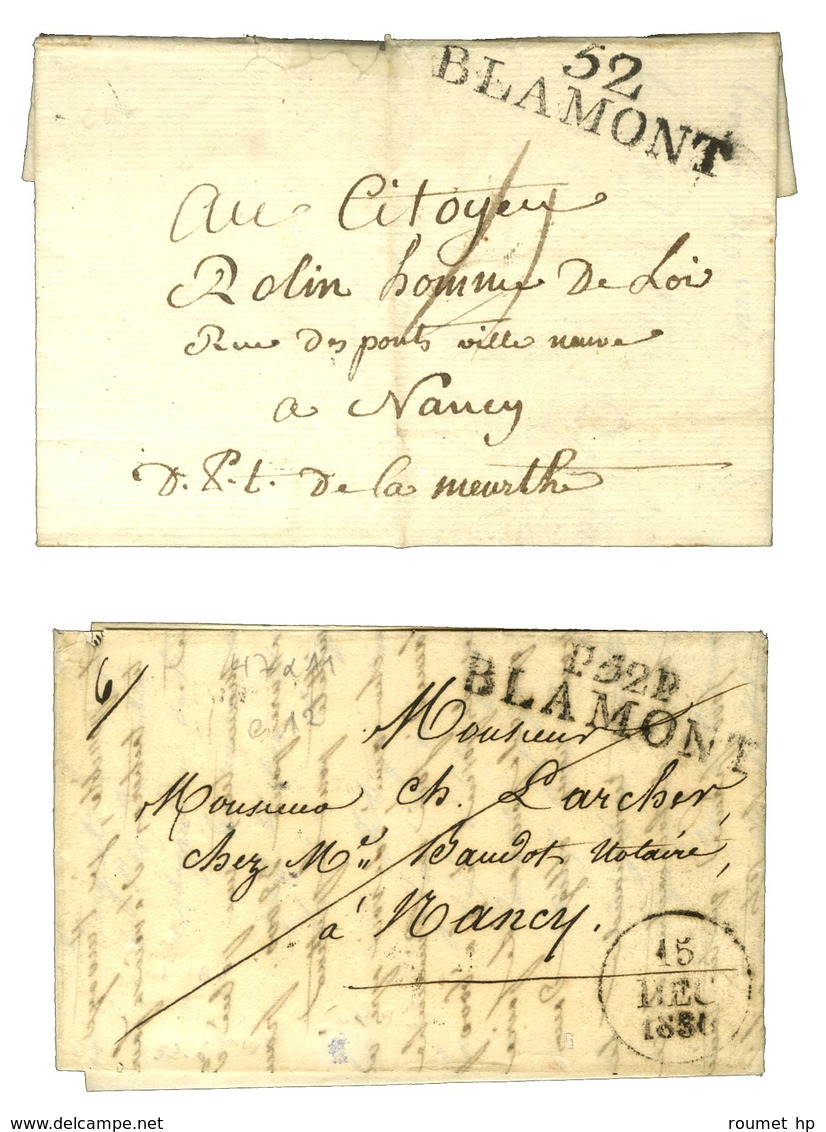 52
BLAMONT
Au Citoyen
Rolin homme De Loi
Rue des ponts ville neuve
a Nancy
D.P.t. De la meurthe
P.52P.
BLAMONT
6/
Monsieur
Monsieur Ch. Larcher,
chez Me Baudot Notaire,
à Nancy.
15
DEC
roumet hp